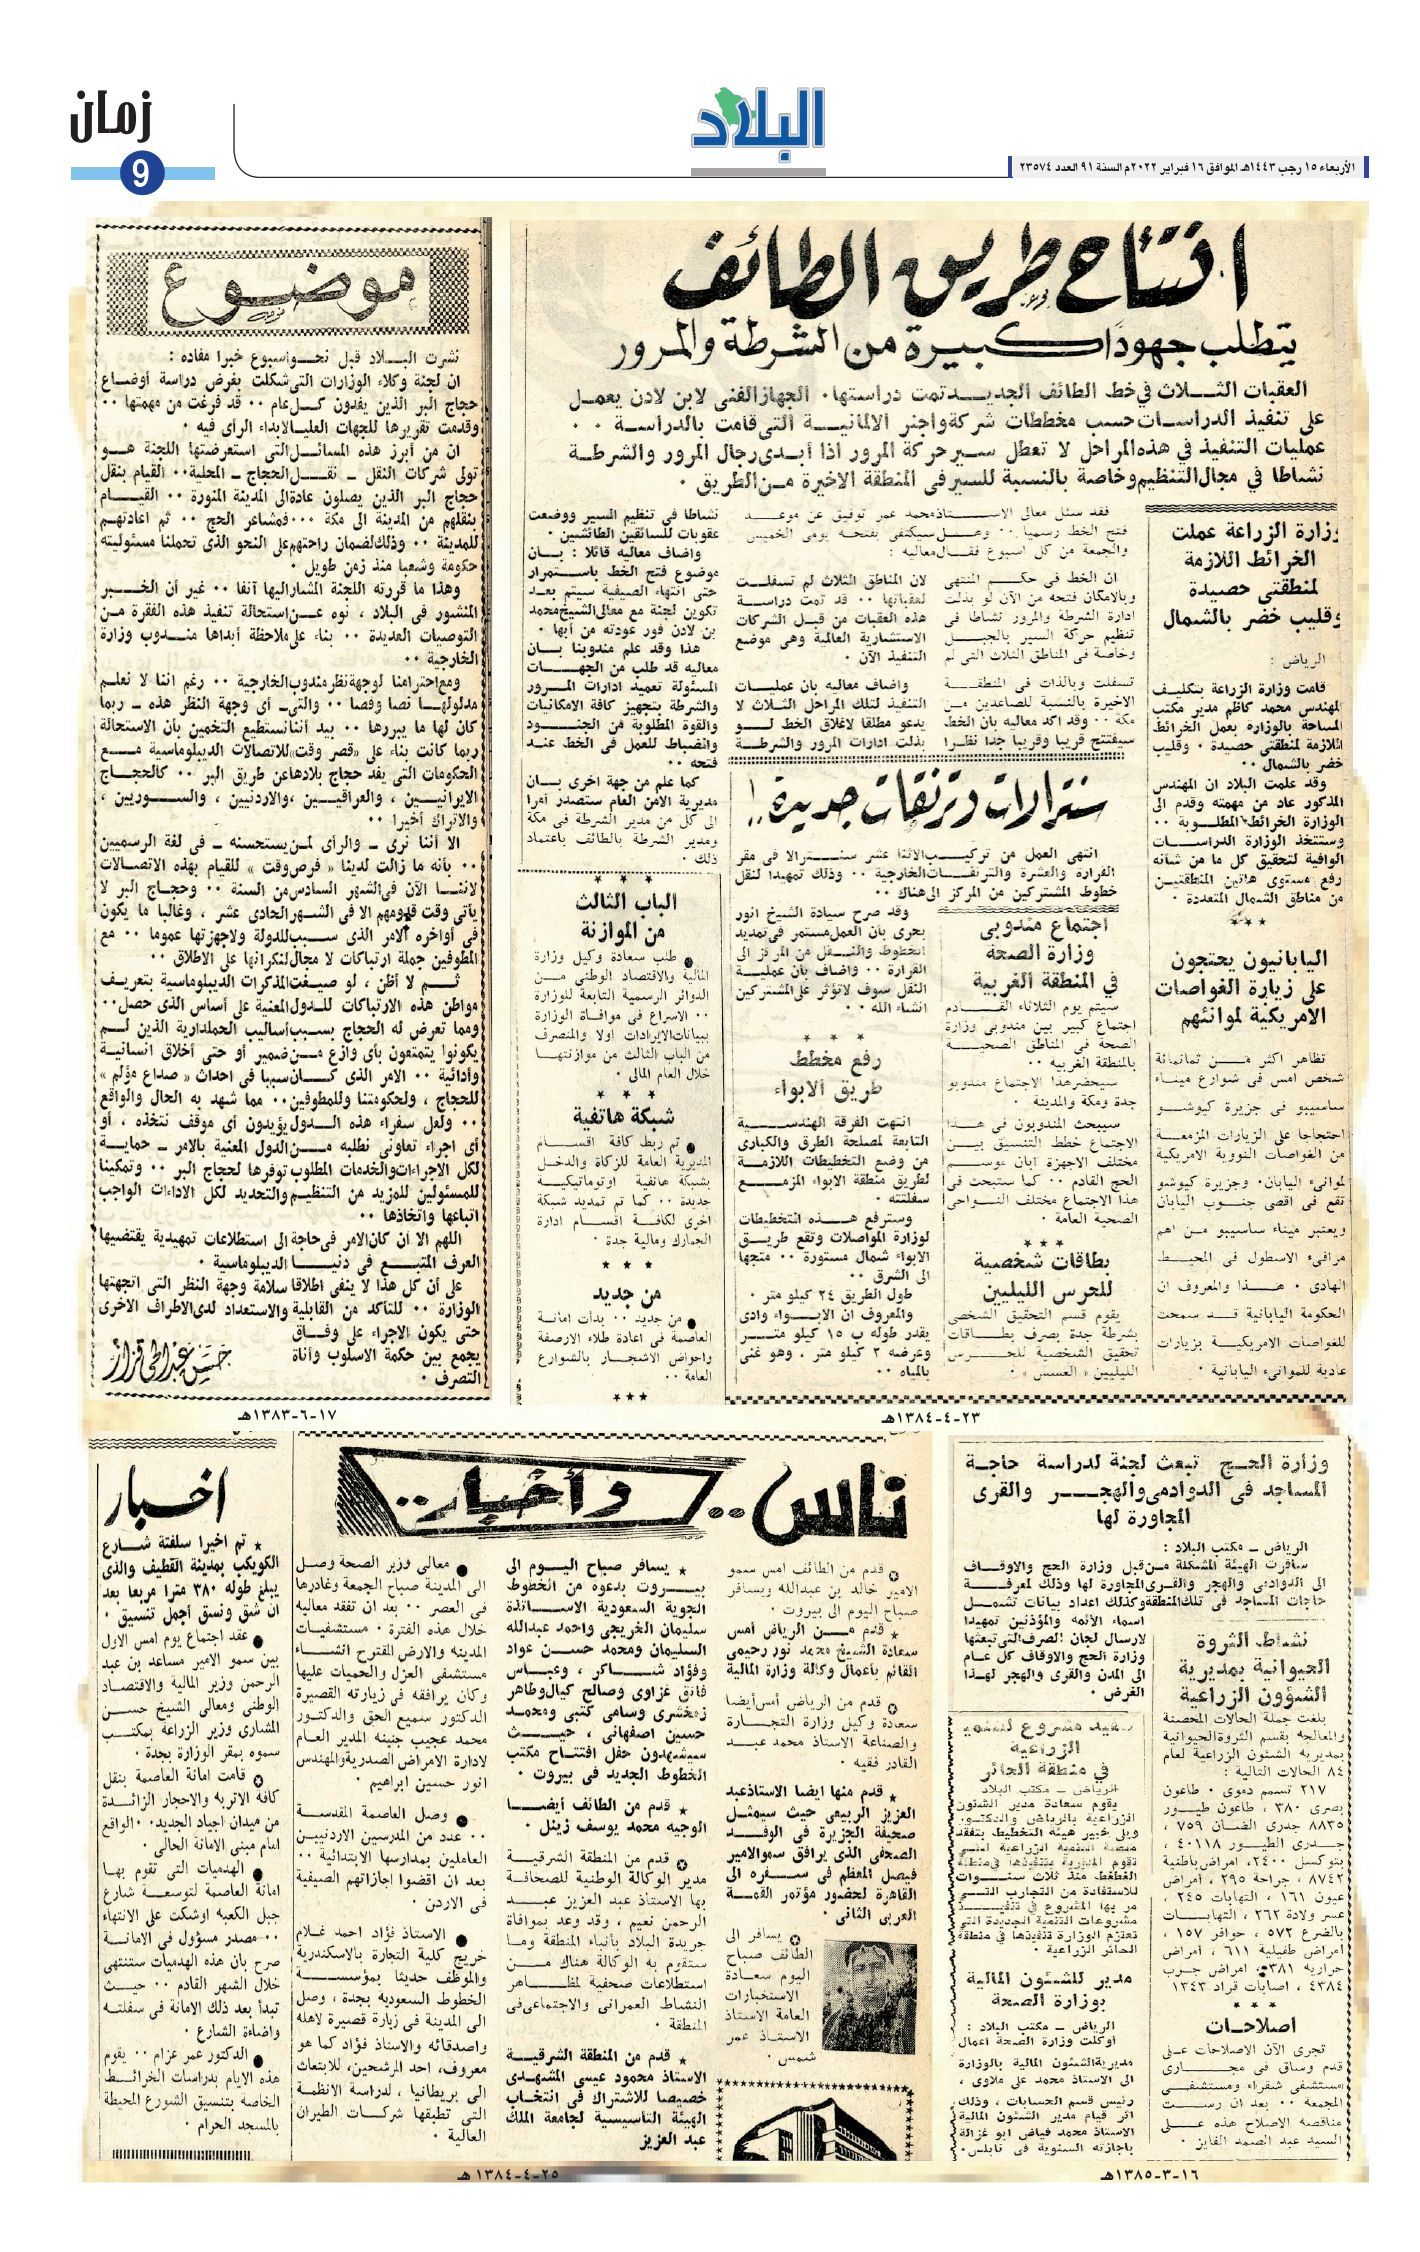 زمان
9
البلاد
الأربعاء ١٥ رجب ١٤٤٣هـ الموافق ١٦ فبراير ٢٠٢٢م السنة ٩١ العدد ٢٣٥٧٤
افتتاح طريق الطائف
يتطلب جهودًا كبيرة من الشرطة والمرور
العقبات الثلاث في خط الطائف الجديد تمت دراستها٠ الجهاز الفنى لابن لادن يعمل
على تنفيذ الدراسات حسب مخططات شركة واجنر الالمانية التي قامت بالدراسة ٠٠
عمليات التنفيذ في هذه المراحل لا تعطل سير حركة المرور اذا أبدى رجال المرور والشرطة
نشاطا في مجال التنظيم وخاصة بالنسبة للسير في المنطقة الاخيرة من الطريق ٠
وزارة الزراعة عملت
الخرائط اللازمة
لمنطقتي حصيدة
وقليب خضر بالشمال
الرياض :
قامت وزارة الزراعة بتكليف
المهندس محمد كاظم مدير مكتب
المساحة بالوزارة بعمل الخرائط
اللازمة لمنطقتي حصيدة ٠ وقليب
خضر بالشمال ٠٠
وقد علمت البلاد ان المهندس
المذكور عاد من مهمته وقدم الى
الوزارة الخرائط المطلوبة ٠٠
وستتخذ الوزارة الدراسات
الوافية لتحقيق كل ما من شأنه
رفع مستوى هاتين المنطقتين
من مناطق الشمال المتعددة ٠
اليابانيون يحتجون
على زيارة الغواصات
الامريكية لموانئهم
تظاهر اكثر من ثمانمائة
شخص امس فى شوارع ميناء
ساسيبو فى جزيرة كيوشو
احتجاجا على الزيارات المزمعة
من الغواصات النووية الامريكية
لموانىء اليابان٠ وجزيرة كيوشو
تقع فى اقصى جنوب اليابان
ويعتبر ميناء ساسيبو من اهم
مرافىء الاسطول فى المحيط
الهادى ٠ هذا والمعروف ان
الحكومة اليابانية قد سمحت
للغواصات الامريكية بزيارات
عادية للموانىء اليابانية ٠
فقد سئل معالى الاستاذ محمد عمر توفيق عن موعد
فتح الخط رسميا ٠٠ وهل سيكتفى بفتحه يومى الخميس
والجمعة من كل اسبوع فقال معاليه :
ان الخط فى حكم المنتهى
وبالامكان فتحه من الآن لو بذلت
ادارة الشرطة والمرور نشاطا فى
تنظيم حركة السير بالجبل
وخاصة فى المناطق الثلاث التى لم
تسفلت وبالذات فى المنطقة
الاخيرة بالنسبة للصاعدين من
مكة ٠٠ وقد اكد معاليه بأن الخط
سيفتتح قريبا وقريبا جدا نظرا
لان المناطق الثلاث لم تسفلت
لعقباتها ٠٠ قد تمت دراسة
هذه العقبات من قبل الشركات
الاستشارية العالمية وهى موضع
التنفيذ الآن ٠
واضاف معاليه بان عمليات
التنفيذ لتلك المراحل الثلاث لا
يدعو مطلقا لاغلاق الخط لو
بذلت ادارات المرور والشرطة
نشاطا فى تنظيم السير ووضعت
عقوبات للسائقين الطائشين ٠
واضاف معاليه قائلا : بان
موضوع فتح الخط باستمرار
حتى انتهاء الصيفية سيتم بعد
تكوين لجنة مع معالى الشيخ محمد
بن لادن فور عودته من أبها ٠
هذا وقد علم مندوبنا بان
معاليه قد طلب من الجهات
المسئولة تعميد ادارات المرور
والشرطة بتجهيز كافة الامكانيات
والقوة المطلوبة من الجنود
وانضباط للعمل فى الخط عند
فتحه ٠٠
كما علم من جهة اخرى بان
مديرية الامن العام ستصدر امرا
الى كل من مدير الشرطة فى مكة
ومدير الشرطة بالطائف باعتماد
ذلك ٠
سنترالات وترنقات جديدة !..
انتهى العمل من تركيب الاثنا عشر سنترالا فى مقر
القرارة والعشرة والترنقات الخارجية ٠٠ وذلك تمهيدا لنقل
خطوط المشتركين من المركز الى هناك ٠٠
وقد صرح سيادة الشيخ انور
بحرى بأن العمل مستمر فى تمديد
الخطوط والنقل من المركز الى
القرارة ٠٠ واضاف بأن عملية
النقل سوف لا تؤثر على المشتركين
انشاء الله ٠
اجتماع مندوبى
وزارة الصحة
في المنطقة الغربية
سيتم يوم الثلاثاء القادم
اجتماع كبير بين مندوبى وزارة
الصحة فى المناطق الصحية
بالمنطقة الغربيه ٠٠
سيحضر هذا الاجتماع مندوبو
جدة ومكة والمدينة ٠
سيبحث المندوبون فى هذا
الاجتماع خطط التنسيق بين
مختلف الاجهزة ابان موسم
الحج القادم ٠٠ كما ستبحث فى
هذا الاجتماع مختلف النواحى
الصحية العامة ٠
بطاقات شخصية
للحرس الليليين
يقوم قسم التحقيق الشخصى
بشرطة جدة بصرف بطاقات
تحقيق الشخصية للحرس
الليليين « العسس » ٠
رفع مخطط
طريق الابواء
انتهت الفرقة الهندسية
التابعة لمصلحة الطرق والكبارى
من وضع التخطيطات اللازمة
لطريق منطقة الابواء المزمع
سفلتته ٠
وسترفع هذه التخطيطات
لوزارة المواصلات وتقع طريق
الابواء شمال مستورة ٠٠ متجها
الى الشرق ٠٠
طول الطريق ٢٤ كيلو متر ٠
والمعروف ان الابواء وادى
يقدر طوله ب ١٥ كيلو متر
وعرضه ٢ كيلو متر ، وهو غنى
بالمياه ٠٠
الباب الثالث
من الموازنة
طلب سعادة وكيل وزارة
المالية والاقتصاد الوطنى من
الدوائر الرسمية التابعة للوزارة
٠٠ الاسراع فى موافاة الوزارة
ببيانات الايرادات اولا والمنصرف
من الباب الثالث من موازنتها
خلال العام المالى ٠
شبكة هاتفية
تم ربط كافة اقسام
المديرية العامة للزكاة والدخل
بشبكة هاتفية اوتوماتيكية
جديدة ٠٠ كما تم تمديد شبكة
اخرى لكافة اقسام ادارة
الجمارك ومالية جدة ٠
من جديد
من جديد ٠٠ بدأت امانة
العاصمة فى اعادة طلاء الارصفة
واحواض الاشجار بالشوارع
العامة ٠٠
٢٣-٤-١٣٨٤هـ
موضوع
نشرت البلاد قبل نحو اسبوع خبرا مفاده :
ان لجنة وكلاء الوزارات التى شكلت بغرض دراسة أوضاع
حجاج البر الذين يفدون كل عام ٠٠ قد فرغت من مهمتها ٠٠
وقدمت تقريرها للجهات العليا لابداء الرأى فيه ٠
ان من أبرز هذه المسائل التى استعرضتها اللجنة هو
تولى شركات النقل ـ نقل الحجاج ـ المحلية٠٠ القيام بنقل
حجاج البر الذين يصلون عادة الى المدينة المنورة ٠٠ القيام
بنقلهم من المدينة الى مكة ٠٠٠ فمشاعر الحج ٠٠ ثم اعادتهم
للمدينة ٠٠ وذلك لضمان راحتهم على النحو الذى تحملنا مسئوليته
حكومة وشعبا منذ زمن طويل ٠
وهذا ما قررته اللجنة المشار اليها آنفا ٠٠ غير أن الخبر
المنشور فى البلاد ، نوه عن استحالة تنفيذ هذه الفقرة من
التوصيات العديدة ٠٠ بناء على ملاحظة أبداها مندوب وزارة
الخارجية ٠٠
ومع احترامنا لوجهة نظر مندوب الخارجية ٠٠ رغم اننا لا نعلم
مدلولها نصا وفصا ٠٠ والتى ـ أى وجهة النظر هذه ـ ربما
كان لها ما يبررها ٠٠ بيد أننا نستطيع التخمين بأن الاستحالة
ربما كانت بناء على «قصر وقت» للاتصالات الديبلوماسية مع
الحكومات التى يفد حجاج بلادها عن طريق البر ٠٠ كالحجاج
الايرانيين ، والعراقيين ، والاردنيين ، والسوريين ،
والاتراك أخيرا ٠٠
الا أننا نرى ـ والرأى لمن يستحسنه ـ فى لغة الرسميين
٠٠ بأنه ما زالت لدينا « فرص وقت » للقيام بهذه الاتصالات
لاننا الآن فى الشهر السادس من السنة ٠٠ وحجاج البر لا
يأتى وقت قدومهم الا فى الشهر الحادى عشر ، وغالبا ما يكون
فى أواخره الامر الذى سبب للدولة ولاجهزتها عموما ٠٠ مع
المطوفين جملة ارتباكات لا مجال لنكرانها على الاطلاق ٠٠
ثم لا أظن ، لو صيغت المذكرات الديبلوماسية بتعريف
مواطن هذه الارتباكات للدول المعنية على أساس الذى حصل٠٠
ومما تعرض له الحجاج بسبب أساليب الحملدارية الذين لم
يكونوا يتمتعون بأى وازع من ضمير أو حتى أخلاق انسانية
وأدائية ٠٠ الامر الذى كان سببا فى احداث « صداع مؤلم »
للحجاج ، ولحكومتنا وللمطوفين٠٠ مما شهد به الحال والواقع
٠٠ ولعل سفراء هذه الدول يؤيدون أى موقف نتخذه ، أو
أى اجراء تعاونى نطلبه من الدول المعنية بالامر ـ حماية
لكل الاجراءات والخدمات المطلوب توفرها لحجاج البر ٠٠ وتمكينا
للمسئولين للمزيد من التنظيم والتحديد لكل الاداءات الواجب
اتباعها واتخاذها ٠٠
اللهم الا أن كان الامر فى حاجة الى استطلاعات تمهيدية يقتضيها
العرف المتبع فى دنيا الديبلوماسية ٠
على أن كل هذا لا ينفى اطلاقا سلامة وجهة النظر التى اتجهتها
الوزارة ٠٠ للتأكد من القابلية والاستعداد لدى الاطراف الاخرى
حتى يكون الاجراء على وفاق
يجمع بين حكمة الاسلوب وأناة
التصرف ٠
حسن عبد الحي قزاز
١٧-٦-١٣٨٣هـ
وزارة الحج تبعث لجنة لدراسة حاجة
المساجد فى الدوادمى والهجر والقرى
المجاورة لها
الرياض ـ مكتب البلاد :
سافرت الهيئة المشكلة من قبل وزارة الحج والاوقاف
الى الدوادمى والهجر والقرى المجاورة لها وذلك لمعرفة
حاجات المساجد فى تلك المنطقة وكذلك اعداد بيانات تشمل
اسماء الائمه والمؤذنين تمهيدا
لارسال لجان الصرف التى تبعثها
وزارة الحج والاوقاف كل عام
الى المدن والقرى والهجر لهذا
الغرض ٠
نشاط الثروة
الحيوانية بمديرية
الشؤون الزراعية
بلغت جملة الحالات المحصنة
والمعالجه بقسم الثروة الحيوانية
بمديريه الشئون الزراعية لعام
٨٤ الحالات التالية :
٢١٧ تسمم دموى ٠ طاعون
بصرى ٣٨٠ ، طاعون طيور
٨٨٣٥ جدرى الضان ٧٥٩ ،
جدرى الطيور ٤٠١١٨ ،
بتوكسل ٢٤٠٠، امراض باطنية
٨٧٤٢ ، جراحة ٢٩٥ ، أمراض
عيون ١٦١ ، التهابات ٢٤٥ ،
عسر ولادة ٢٦٢ ، التهابات
بالضرع ٥٧٢ ، حوافر ١٥٧ ،
امراض طفيلية ٦١١ ، أمراض
حراريه ٣٨١، امراض جرب
٤٣٨٤ ، اصابات قراد ١٣٤٣
اصلاحات
تجرى الآن الاصلاحات على
قدم وساق فى مجارى
مستشفى شقراء ومستشفى
المجمعه ٠٠ بعد ان رست
مناقصه الاصلاح هذه على
السيد عبد الصمد الفايز ٠
الزراعية
في منطقة الحائر
الرياض ـ مكتب البلاد
يقوم سعادة مدير الشئون
الزراعية بالرياض والدكتور
ويلى خبير هيئة التخطيط بتفقد
تقوم المديرية بتنفيذها فى منطقة
الغطغط منذ ثلاث سنوات
للاستفادة من التجارب التى
مر بها المشروع فى تنفيذ
مشروعات التنمية الجديدة التى
تعتزم الوزارة تنفيذها فى منطقة
الحائر الزراعية ٠
مدير للشئون المالية
بوزارة الصحة
الرياض ـ مكتب البلاد :
أوكلت وزارة الصحة اعمال
مديرية الشئون المالية بالوزارة
الى الاستاذ محمد على ملاوى ،
رئيس قسم الحسابات ، وذلك
اثر قيام مدير الشئون المالية
الاستاذ محمد فياض ابو غزالة
باجازته السنوية فى نابلس ٠
١٦-٣-١٣٨٥هـ
ناس .. وأخبار ..
قدم من الطائف امس سمو
الامير خالد بن عبدالله ويسافر
صباح اليوم الى بيروت ٠
قدم من الرياض أمس
سعادة الشيخ محمد نور رحيمى
القائم بأعمال وكالة وزارة المالية
قدم من الرياض أمس أيضا
سعادة وكيل وزارة التجارة
والصناعة الاستاذ محمد عبد
القادر فقيه ٠
قدم منها ايضا الاستاذ عبد
العزيز الربيعى حيث سيمثل
صحيفة الجزيرة فى الوفد
الصحفى الذى يرافق سمو الامير
فيصل المعظم فى سفره الى
القاهرة لحضور مؤتمر القمة
العربى الثانى ٠
يسافر الى
الطائف صباح
اليوم سعادة
الاستخبارات
العامة الاستاذ
الاستاذ عمر
شمس ٠
يسافر صباح اليوم الى
بيروت بدعوة من الخطوط
الجوية السعودية الاساتذة
سليمان الخريجى واحمد عبدالله
السليمان ومحمد حسن عواد
وفؤاد شاكر ، وعباس
فائق غزاوى وصالح كيال وطاهر
زمخشرى وسامى كتبى ومحمد
حسين اصفهانى ، حيث
سيشهدون حفل افتتاح مكتب
الخطوط الجديد فى بيروت ٠
قدم من الطائف أيضا
الوجيه محمد يوسف زينل ٠
قدم من المنطقة الشرقية
مدير الوكالة الوطنية للصحافة
بها الاستاذ عبد العزيز عبد
الرحمن نعيم ، وقد وعد بموافاة
جريدة البلاد بأنباء المنطقة وما
ستقوم به الوكالة هناك من
استطلاعات صحفية لمظاهر
النشاط العمرانى والاجتماعى فى
المنطقة ٠
قدم من المنطقة الشرقية
الاستاذ محمود عيسى المشهدى
خصيصا للاشتراك فى انتخاب
الهيئة التأسيسية لجامعة الملك
عبد العزيز
معالى وزير الصحة وصل
الى المدينة صباح الجمعة وغادرها
فى العصر ٠٠ بعد ان تفقد معاليه
خلال هذه الفترة ٠ مستشفيات
المدينه والارض المقترح انشاء
مستشفى العزل والحميات عليها
وكان يرافقه فى زيارته القصيرة
الدكتور سميع الحق والدكتور
محمد عجيب جنينه المدير العام
لادارة الامراض الصدرية والمهندس
انور حسين ابراهيم ٠
وصل العاصمة المقدسة
٠٠ عدد من المدرسين الاردنيين
العاملين بمدارسها الابتدائية ٠٠
بعد ان اقضوا اجازاتهم الصيفية
فى الاردن ٠
الاستاذ فؤاد احمد غلام
خريج كلية التجارة بالاسكندرية
والموظف حديثا بمؤسسة
الخطوط السعودية بجدة ، وصل
الى المدينة فى زيارة قصيرة لاهله
واصدقائه والاستاذ فؤاد كما هو
معروف، احد المرشحين، للابتعاث
الى بريطانيا ، لدراسة الانظمة
التى تطبقها شركات الطيران
العالية ٠
اخبار
تم اخيرا سلفتة شارع
الكويكب بمدينة القطيف والذى
يبلغ طوله ٣٨٠ مترا مربعا بعد
ان شق ونسق أجمل تنسيق ٠
عقد اجتماع يوم امس الاول
بين سمو الامير مساعد بن عبد
الرحمن وزير المالية والاقتصاد
الوطنى ومعالى الشيخ حسن
المشارى وزير الزراعة بمكتب
سموه بمقر الوزارة بجدة ٠
قامت امانة العاصمة بنقل
كافة الاتربه والاحجار الزائدة
من ميدان اجياد الجديد٠٠ الواقع
امام مبنى الامانة الحالى ٠
الهدميات التى تقوم بها
امانة العاصمة لتوسعة شارع
جبل الكعبه اوشكت على الانتهاء
٠٠ مصدر مسؤول فى الامانة
صرح بان هذه الهدميات ستنتهى
خلال الشهر القادم ٠٠ حيث
تبدأ بعد ذلك الامانة فى سفلتته
واضاءة الشارع ٠
الدكتور عمر عزام ٠٠ يقوم
هذه الايام بدراسات الخرائط
الخاصه بتنسيق الشورع المحيطة
بالمسجد الحرام ٠
٢٥-٤-١٣٨٤هـ